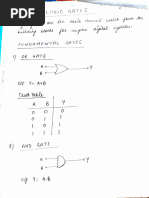 LOGIC GATES
are the basic
building blocks for
digital systems.
FUNDAMENTAL GATES
1) OR GATE
A
B
Y
O/P Y = A+B
Truth Table
A B Y
0 0 0
0 1 1
1 0 1
1 1 1
2) AND GATE
A
B
Y
O/P Y = A.B